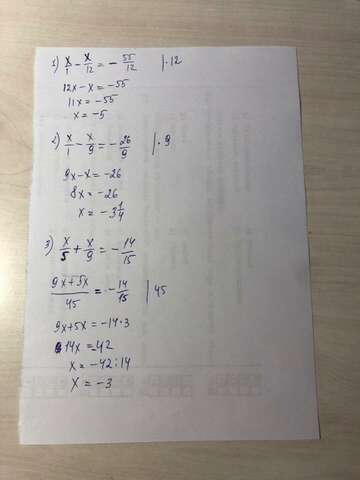 1) x/1 - x/12 = - 55/12 |·12
12x - x = -55
11x = -55
x = -5
2) x/1 - x/9 = - 26/9 |·9
9x - x = -26
8x = -26
x = -3 1/4
3) x/5 + x/9 = - 14/15
(9x + 5x)/45 = - 14/15 |45
9x + 5x = -14·3
14x = -42
x = -42 : 14
x = -3